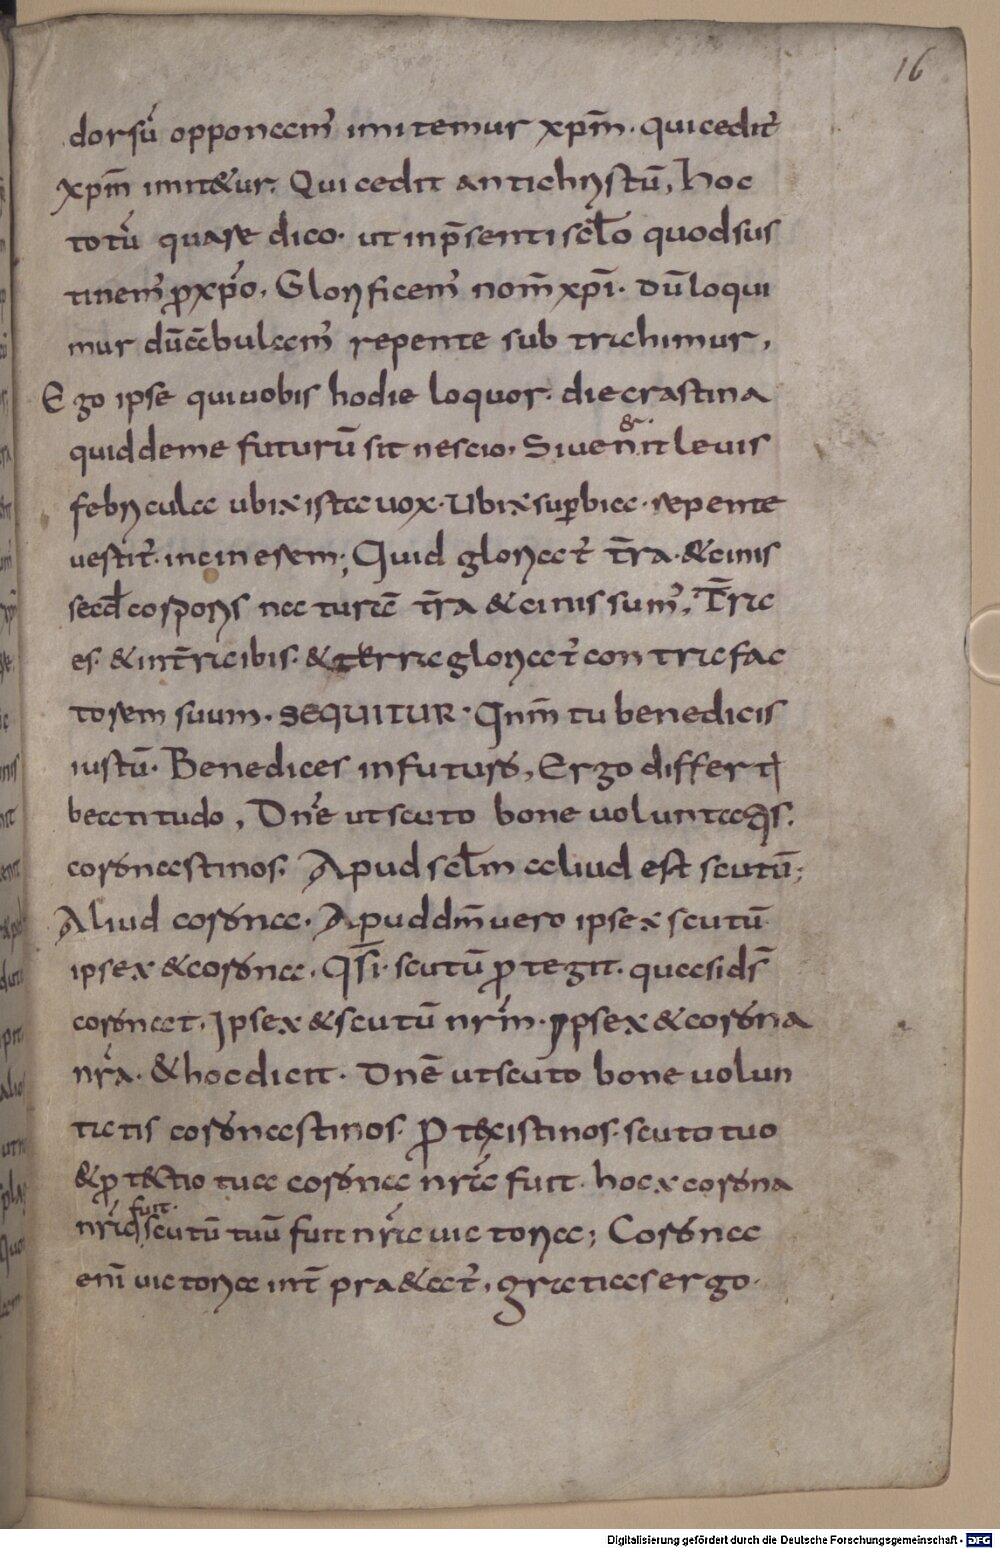 16
dorsū opponam̄ imitemur xp̄m. qui cedit̄
xp̄m imit&ur. Qui cedit antichristū, hoc
totū quare dico. ut in p̄senti sc̄lo quod sus
tinem̄ p̄ xp̄o. Glorificem̄ nom̄ xp̄i. Dū loqui
mur dū ābulam̄ repente subtrahimur,
Ego ipse qui uobis hodie loquor. die crastina
quid de me futurū sit nescio. Si uen̄it leuis
&
febricula ubi x ista uox. Ubi x superbia. repente
uestit̄. in cinerem; Quid gloriat̄ t̄ra. & cinis
sec̄d corporis naturā t̄ra & cinis sum̄. T̄ra
es. & in t̄ra ibis. & terra gloriat̄ contra fac
torem suum. SEQUITUR. Qnm̄ tu benedicis
iustū. Benedices in futuro, Ergo differt
beatitudo, Dn̄e ut scuto bone uoluntatis.
coronasti nos. Apud sc̄lm aliud est scutū;
Aliud corona. Apud dm̄ uero ipse x scutū
ipse x & corona. Qsī scutū p̄tegit. quasi ds̄
coronat. Ipse x & scutū nr̄m. Ipse x & corona
nr̄a. & hoc dicit. Dn̄e ut scuto bone uolun
tatis coronasti nos. P̄texisti nos. scuto tuo
& p̄t&ctio tua corona nr̄a fuit. hoc x corona
fuit.
nr̄a q̄ scutū tuū fuit nr̄a uictoria; Corona
eni uictoria int̄ pra&at̄, gratias ergo.
Digitalisierung gefördert durch die Deutsche Forschungsgemeinschaft - DFG